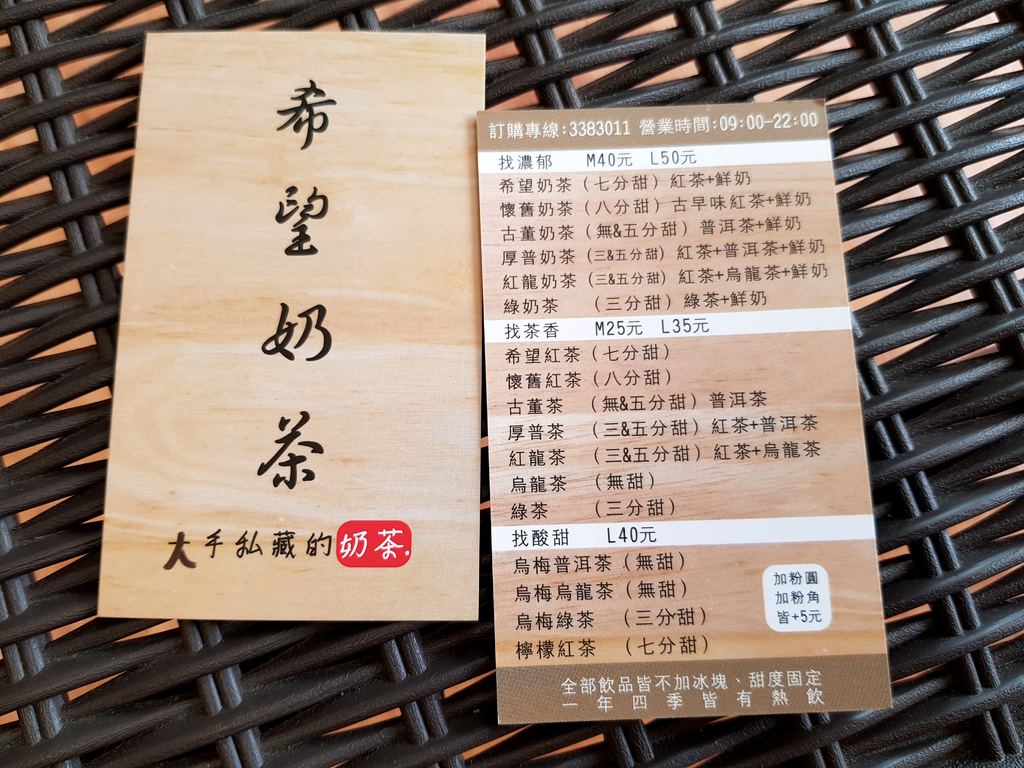 希望奶茶
大手私藏的奶茶.
訂購專線:3383011 營業時間:09:00-22:00
找濃郁 M40元 L50元
希望奶茶(七分甜)紅茶+鮮奶
懷舊奶茶(八分甜)古早味紅茶+鮮奶
古董奶茶(無&五分甜)普洱茶+鮮奶
厚普奶茶(三&五分甜)紅茶+普洱茶+鮮奶
紅龍奶茶(三&五分甜)紅茶+烏龍茶+鮮奶
綠奶茶 (三分甜)綠茶+鮮奶
找茶香 M25元 L35元
希望紅茶(七分甜)
懷舊紅茶(八分甜)
古董茶 (無&五分甜)普洱茶
厚普茶 (三&五分甜)紅茶+普洱茶
紅龍茶 (三&五分甜)紅茶+烏龍茶
烏龍茶 (無甜)
綠茶 (三分甜)
找酸甜 L40元
烏梅普洱茶(無甜)
烏梅烏龍茶(無甜)
烏梅綠茶 (三分甜)
檸檬紅茶 (七分甜)
加粉圓
加粉角
皆+5元
全部飲品皆不加冰塊、甜度固定
一年四季皆有熱飲